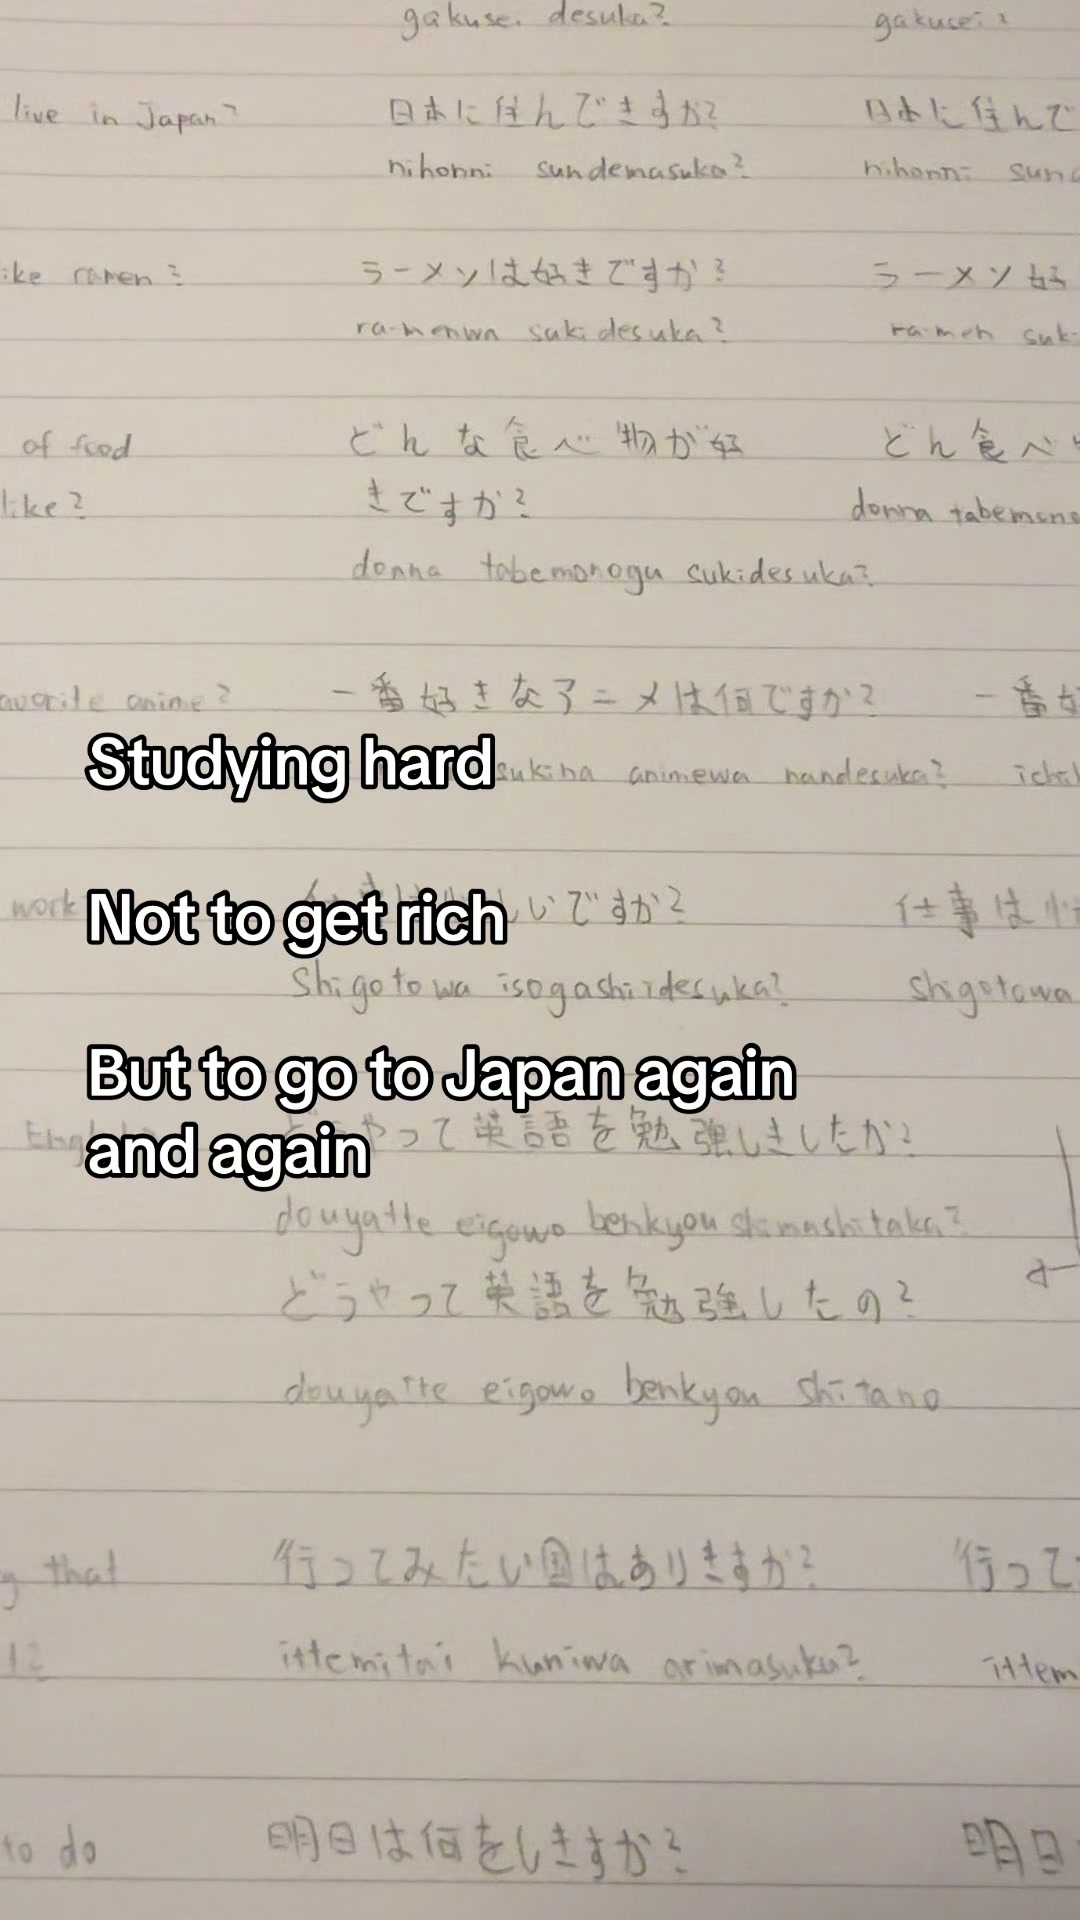 gakusei desuka?    gakusei?
live in Japan?    日本に住んできすか?    日本に住んで
nihonni sundemasuka?    nihonni sund
ike ramen?    ラーメンは好きですか?    ラーメン好
ra-menwa sukidesuka?    ra-men suk
of food    どんな食べ物が好    どん食べ
like?    きですか?    donna tabemono
donna tabemonoga sukidesuka?
avorite anime?    一番好きなアニメは何ですか?    一番好
Studying hard
sukina animewa nandesuka?    ichi
work    しいですか?    仕事は忙
Not to get rich
shigotowa isogashiidesuka?    shigotowa
But to go to Japan again
やって英語を勉強しましたか?
and again
douyatte eigowo benkyou shimashitaka?
どうやって英語を勉強したの?
douyatte eigowo benkyou shitano
g that    行ってみたい国はありきすか?    行って
ittemitai kuniwa arimasuka?    ittem
to do    明日は何をしきすか?    明日